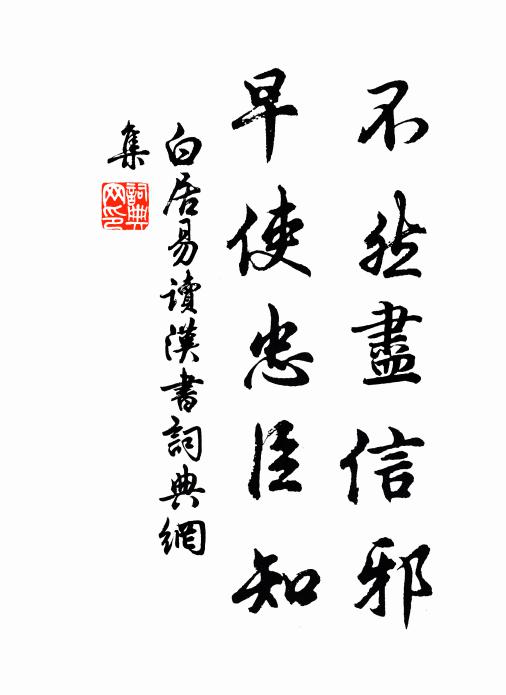 不然盡信邪
早使忠臣知
白居易讀漢書詞典網
集
詞典
网印